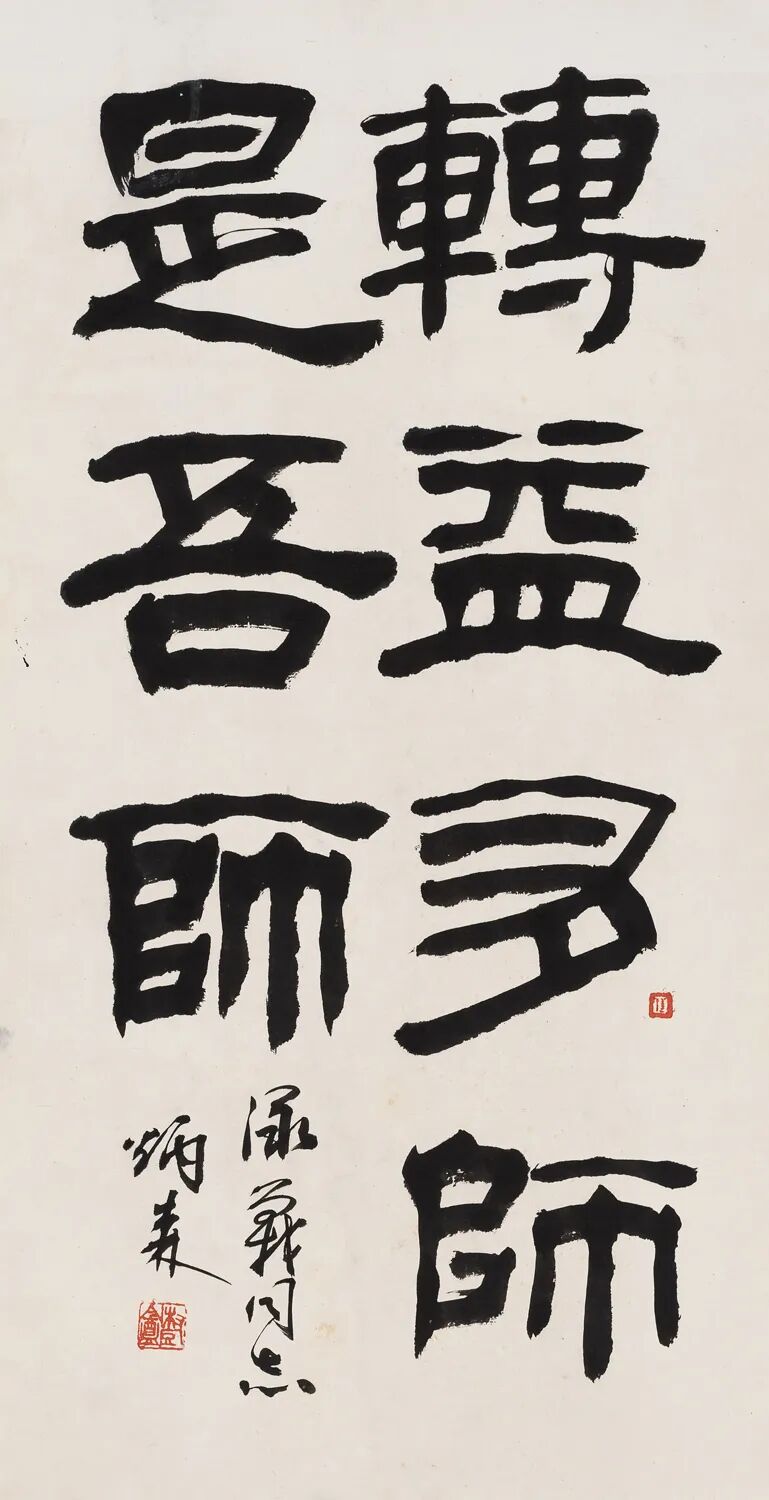 轉益多師
是吾師
義同志
炳森
樹盦